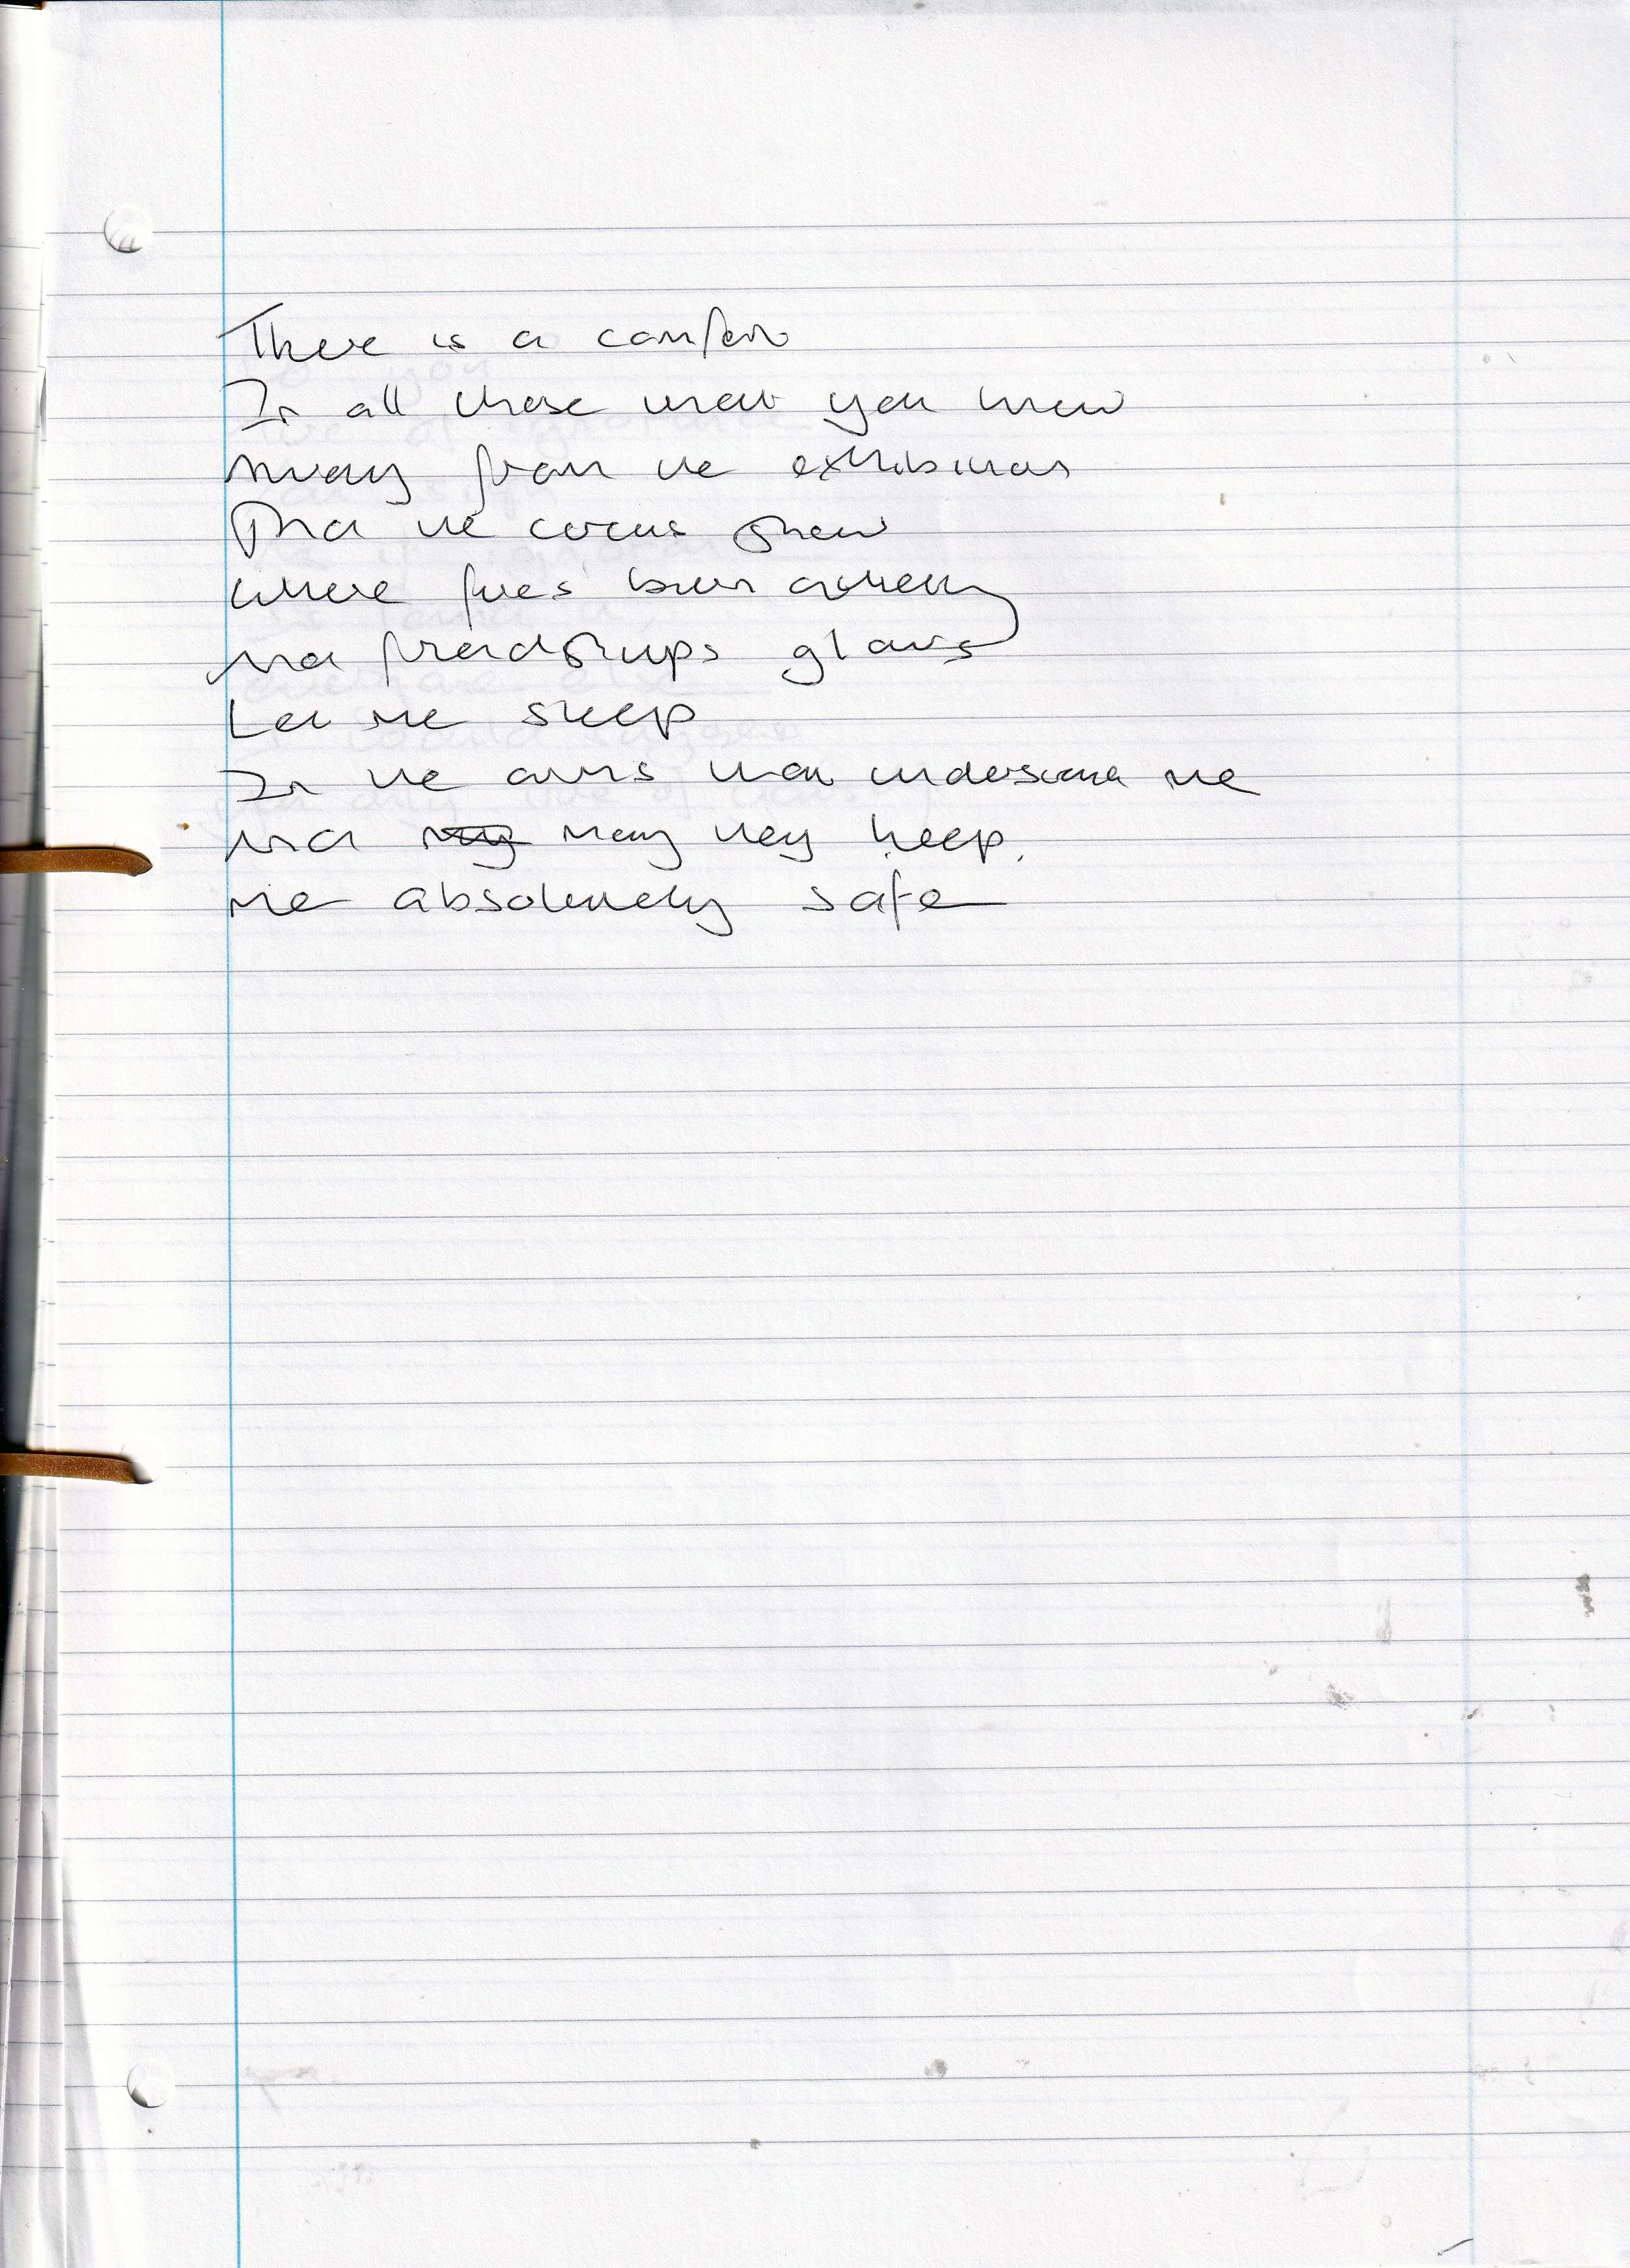 There is a comfort
In all those that you knew
Away from the exhibitions
And the circus show
Where fires burn quietly
And friendships glows
Let me sleep
In the arms that understand me
And may they keep
me absolutely safe